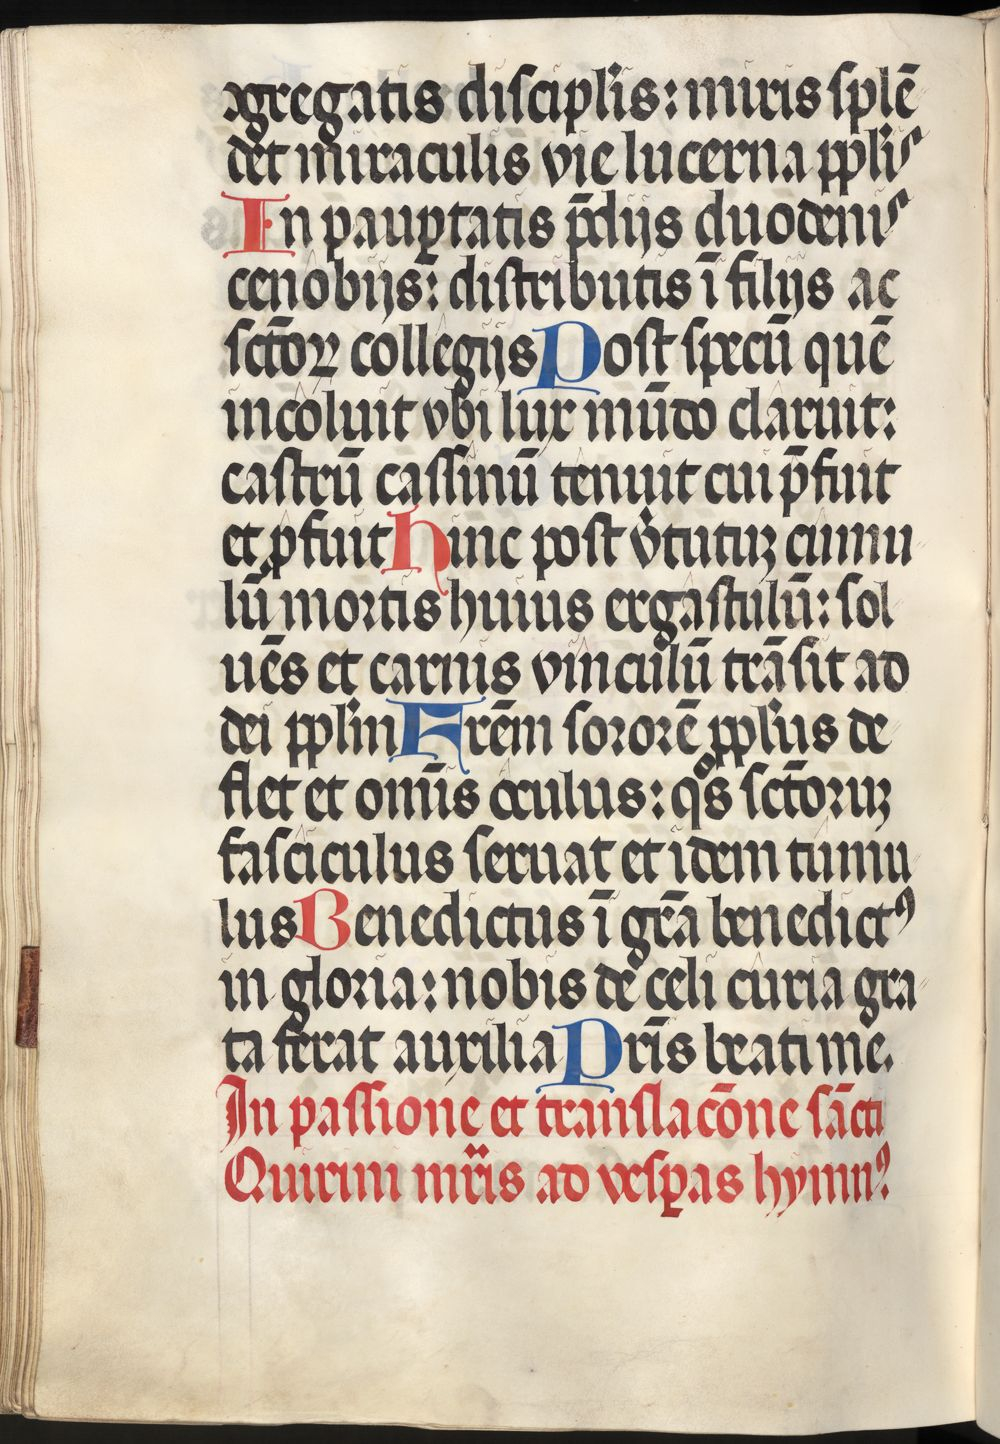 ꝯgregatis discipĺis: miris splē
det miraculis vie lucerna ppĺis
In pauꝑtatis p̄dijs duodenis
cenobijs: distributis ī filijs ac
sc̄toꝝ collegijs Post specū quē
incoluit vbi lux mūdo claruit:
castrū cassinū tenuit cui p̄fuit
et ꝓfuit Hinc post v̓tutuꝫ cumu
lū mortis huius ergastulū: sol
uēs et carnis vinculū trāsit ad
dei ppĺm Frēm sororē ppĺus de
flet et om̄is oculus: qͦs sc̄toruꝫ
fasciculus seruat et idem tumu
lus Benedictus ī grā benedictꝰ
in gloria: nobis de celi curia gra
ta ferat auxilia Pr̄is beati me.
In passione et translac̄one sāncti
Quirini mr̄is ad vesꝑas hymnꝰ.